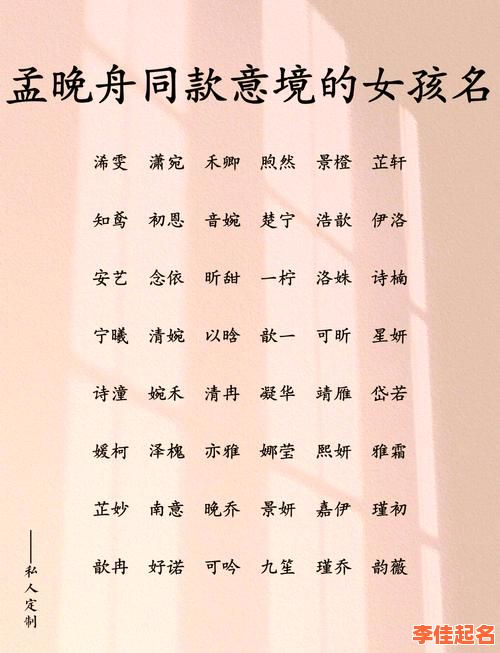 孟晚舟同款意境的女孩名
浠雯 潇宛 禾卿 煦然 景橙 芷轩
知鸢 初恩 音婉 楚宁 浩歆 伊洛
安艺 念依 昕甜 一柠 洛姝 诗楠
宁曦 清婉 以晗 歆一 可昕 星妍
诗潼 婉禾 清冉 凝华 靖雁 岱若
媛柯 泽槐 亦雅 娜莹 熙妍 雅霜
芷妙 南意 晚乔 景妍 嘉伊 瑾初
歆冉 好诺 可吟 九笙 瑾乔 韵薇
——私人定制
李佳起名